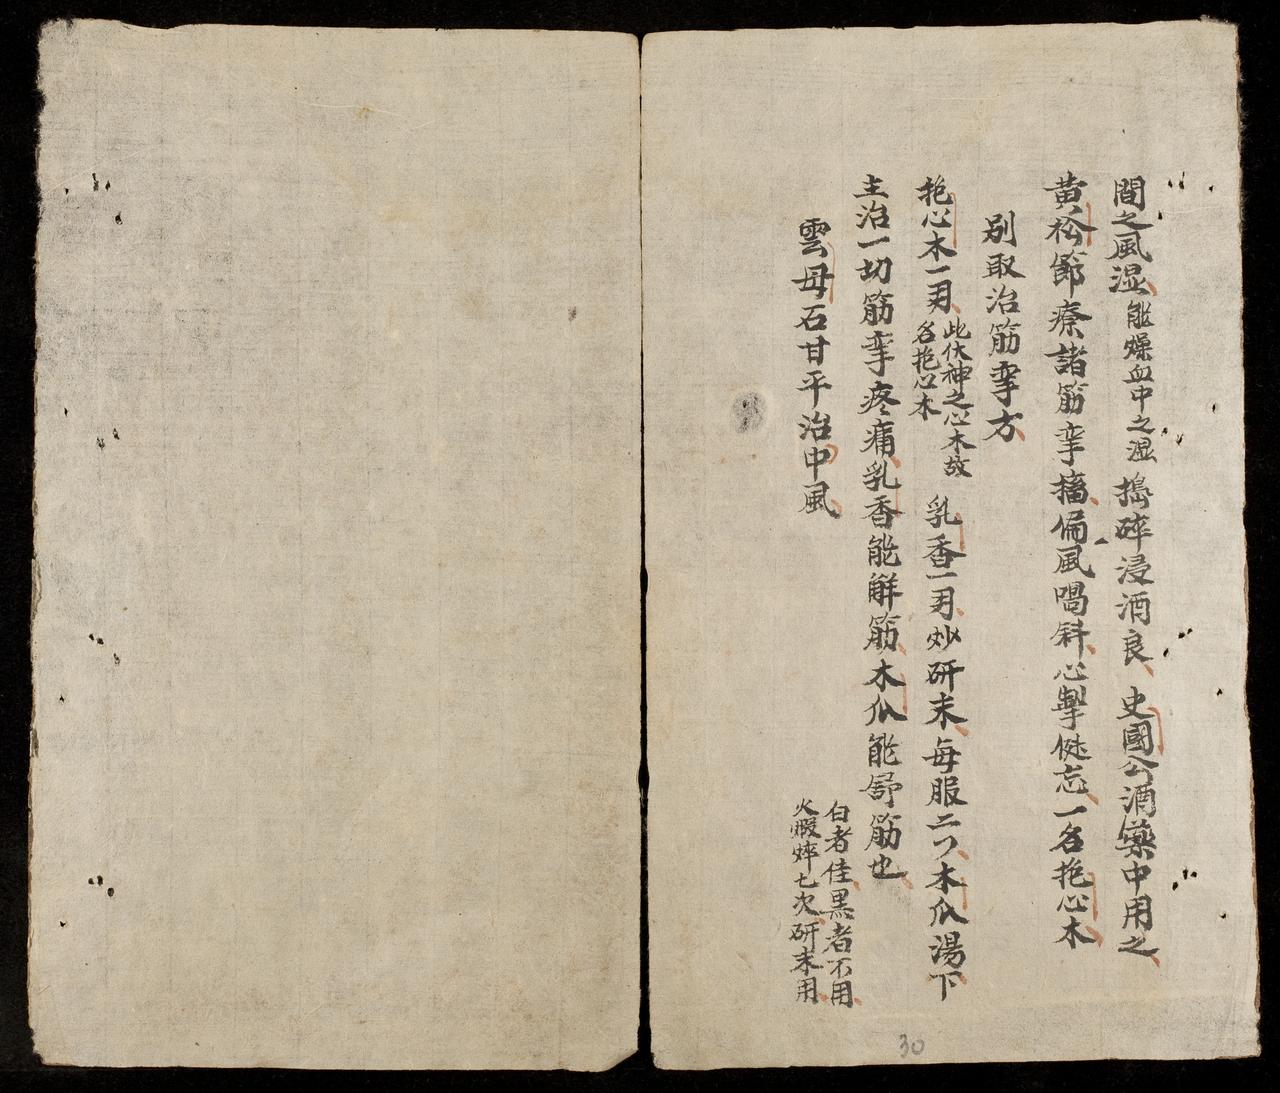 間之風湿能燥血中之湿搗碎浸酒良 史國公酒藥中用之
黄松節療諸筋孪搐偏風喎斜心掣健忘一名抱心木
別取治筋孪方
抱心木一刄此伏神之心木故名抱心木 乳香一刄炒研末每服二丿木瓜湯下
主治一切筋孪疼痛乳香能觧筋木瓜能舒筋也
雲母石甘平治中風 白者佳黒者不用火煆焠七次研末用
30